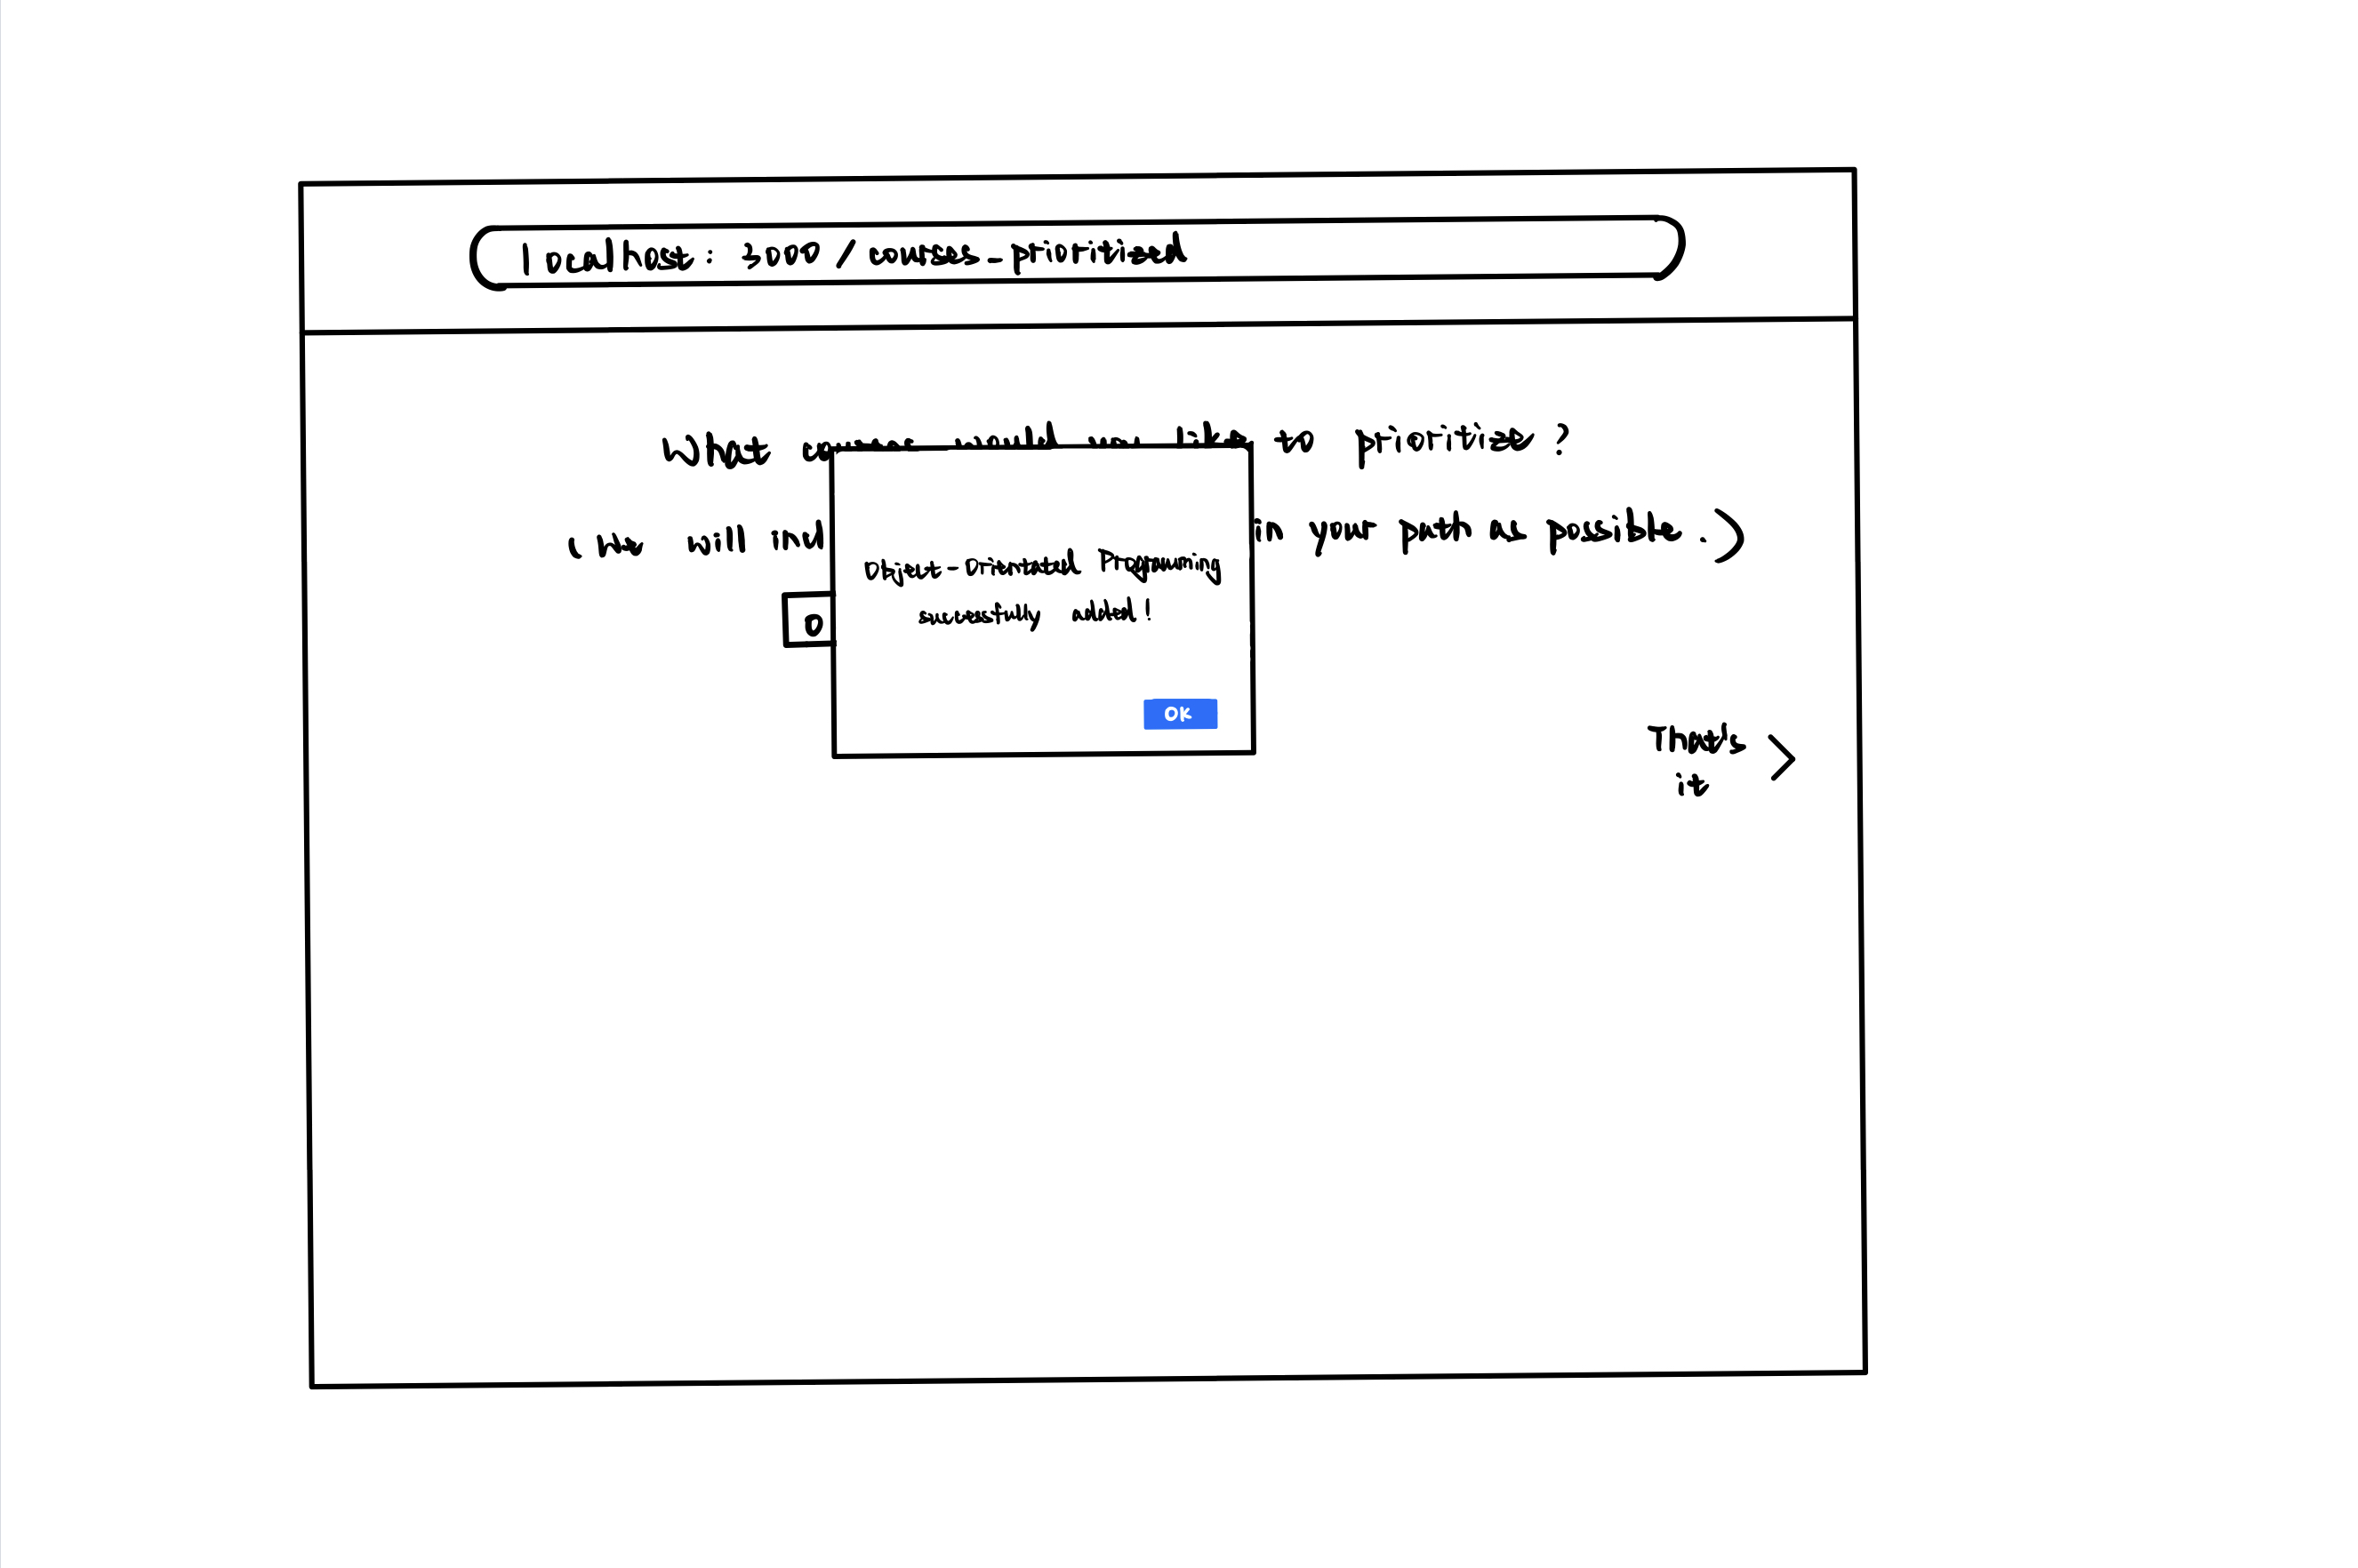 localhost: 3000/courses-prioritized
What courses would you like to prioritize?
(We will incl
in your path as possible.)
Object-Oriented Programming
successfully added!
O
OK
That's
it